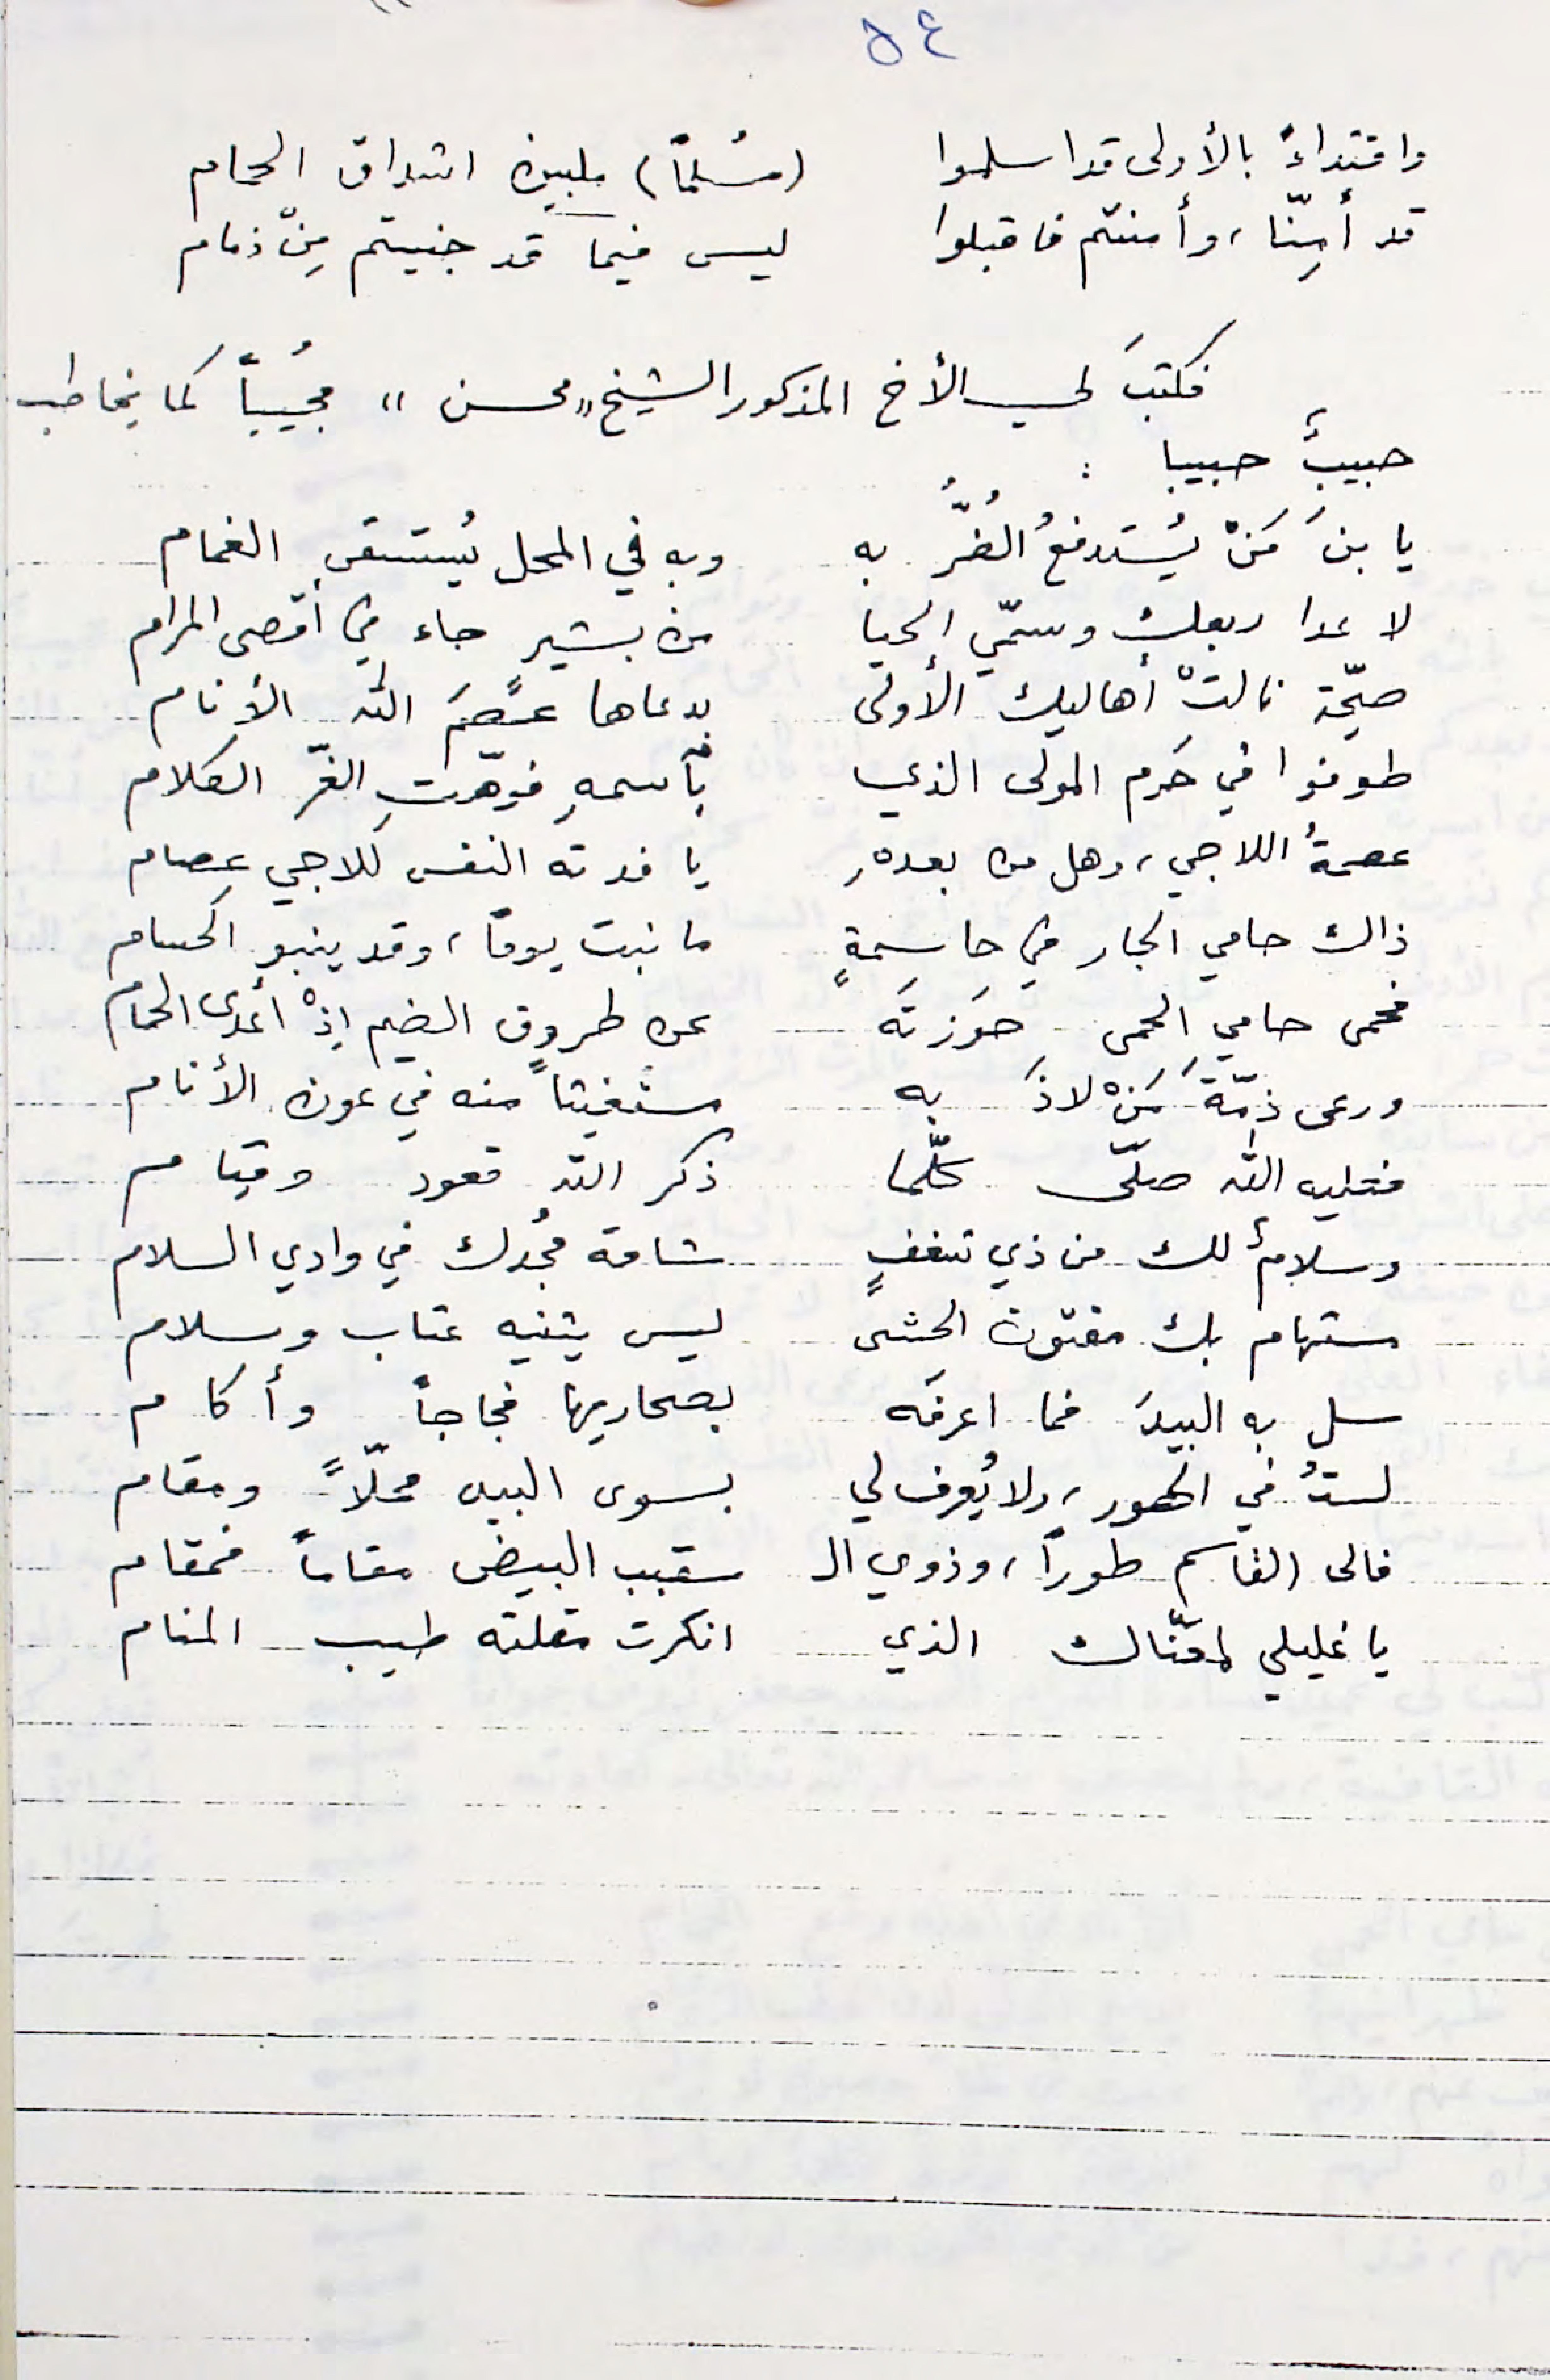 ٥٤
واقتداءً بالأولى قد اسلموا (مسلماً) ملبين اشداق الحمام
قد أمِنّا، وأمنتم فاقبلوا ليس فيما قد جنيتم مِنْ ذمام
فكتبَ لي الأخ المذكور الشيخ "محسن" مجيباً كما يخاطب
حبيبٌ حبيبا :
يا بنَ مَنْ يُستدفعُ الضُرُّ به وبه في المحل يُستسقى الغمام
لا عدا ربعك وسمّي الحيا من بشير جاء في أقصى المرام
صحّة نالتْ أهاليك الأولى بدعاها عصَمَ الله الأنام
طوفوا في حَرم المولى الذي بأسمهِ فوّهتِ الغرّ الكلام
عصمةُ اللاجي، وهل من بعدهِ يا فدته النفس للاجي عِصام
ذاك حامي الجار في حاسمةٍ ما نبت يوماً، وقد ينبو الحسام
فحمى حامي الحمى حَوزتَه عن طروق الضيم إذْ أعدى الحمام
ورعى ذمّةَ مَنْ لاذَ به مستغيثاً منه في عون الأنام
فعليه الله صلّى كلّما ذكر الله قعود وقيام
وسلامٌ لك من ذي شغفٍ شامه مجدك في وادي السلام
مستهام بك مفتون الحشى ليس يثنيه عتاب وسلام
سل به البيدَ فما اعرفَه بصحاريها فجاجاً وأكام
لستُ في الحور، ولا يُعرف لي بسوى البيد محلّاً ومقام
فالى القاسم طوراً، وذوي الـ ـقبب البيض مقاماً فمقام
يا غليلي لمعنّاك الذي انكرت مقلته طيب المنام